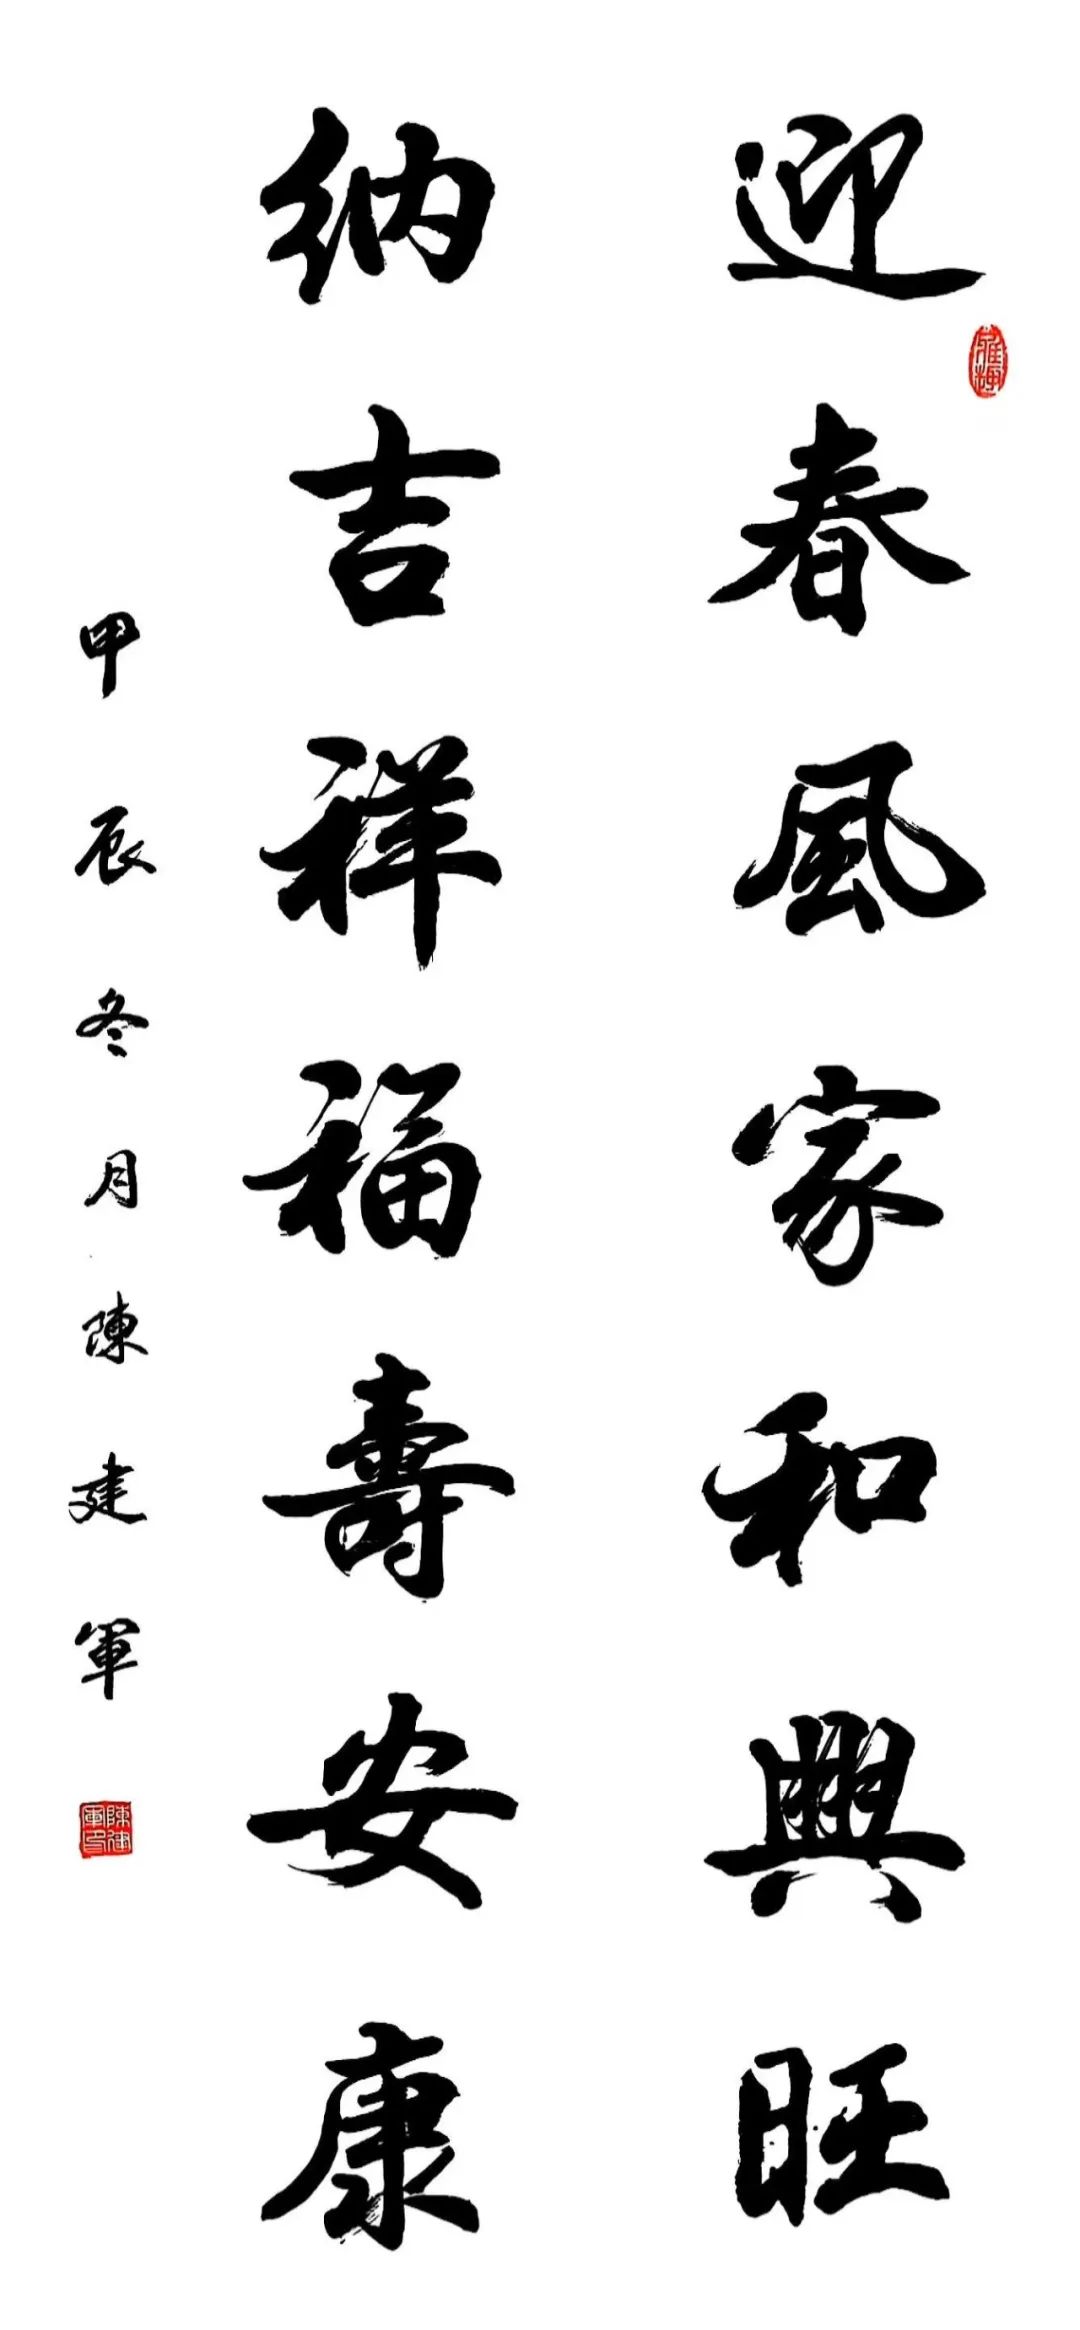 迎春風家和興旺
納吉祥福壽安康
甲辰冬月陳建軍